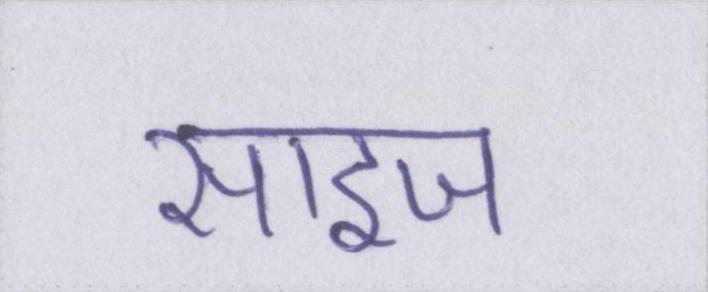 साइज